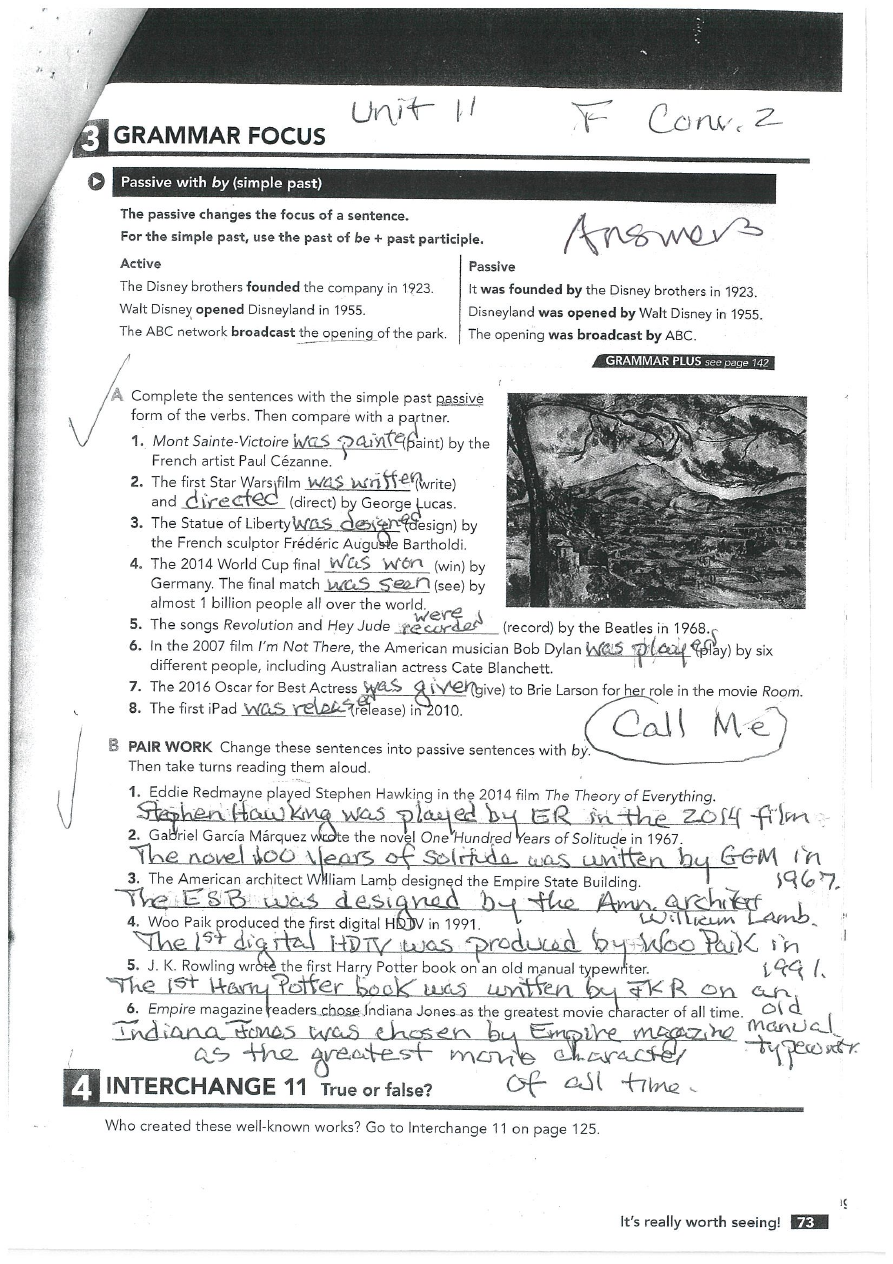 Unit 11 F Conv. 2
3 GRAMMAR FOCUS
Passive with by (simple past)
The passive changes the focus of a sentence.
For the simple past, use the past of be + past participle.
Answers
Active
The Disney brothers founded the company in 1923.
Walt Disney opened Disneyland in 1955.
The ABC network broadcast the opening of the park.
Passive
It was founded by the Disney brothers in 1923.
Disneyland was opened by Walt Disney in 1955.
The opening was broadcast by ABC.
GRAMMAR PLUS see page 142
A Complete the sentences with the simple past passive
form of the verbs. Then compare with a partner.
1. Mont Sainte-Victoire was painted (paint) by the
French artist Paul Cézanne.
2. The first Star Wars film was written (write)
and directed (direct) by George Lucas.
3. The Statue of Liberty was designed (design) by
the French sculptor Frédéric Auguste Bartholdi.
4. The 2014 World Cup final was won (win) by
Germany. The final match was seen (see) by
almost 1 billion people all over the world.
were
5. The songs Revolution and Hey Jude recorded (record) by the Beatles in 1968.
6. In the 2007 film I'm Not There, the American musician Bob Dylan was played (play) by six
different people, including Australian actress Cate Blanchett.
7. The 2016 Oscar for Best Actress was given (give) to Brie Larson for her role in the movie Room.
8. The first iPad was released (release) in 2010.
Call Me
B PAIR WORK Change these sentences into passive sentences with by.
Then take turns reading them aloud.
1. Eddie Redmayne played Stephen Hawking in the 2014 film The Theory of Everything.
Stephen Hawking was played by ER in the 2014 film
2. Gabriel García Márquez wrote the novel One Hundred Years of Solitude in 1967.
The novel 100 years of Solitude was written by GGM in
1967.
3. The American architect William Lamb designed the Empire State Building.
The ESB was designed by the Amn. architect
William Lamb.
4. Woo Paik produced the first digital HDTV in 1991.
The 1st digital HDTV was produced by Woo Paik in
1991.
5. J. K. Rowling wrote the first Harry Potter book on an old manual typewriter.
The 1st Harry Potter book was written by JKR on an
old
manual
typewrtr.
6. Empire magazine readers chose Indiana Jones as the greatest movie character of all time.
Indiana Jones was chosen by Empire magazine
as the greatest movie character
of all time.
4 INTERCHANGE 11 True or false?
Who created these well-known works? Go to Interchange 11 on page 125.
It's really worth seeing! 73